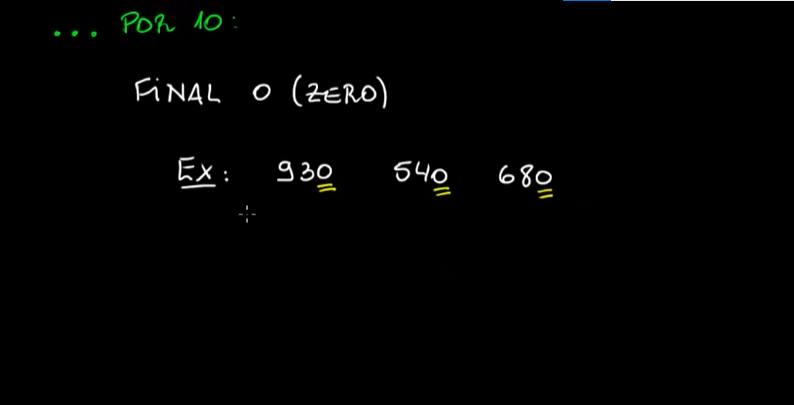 ... POR 10:
FINAL 0 (ZERO)
Ex: 930 540 680